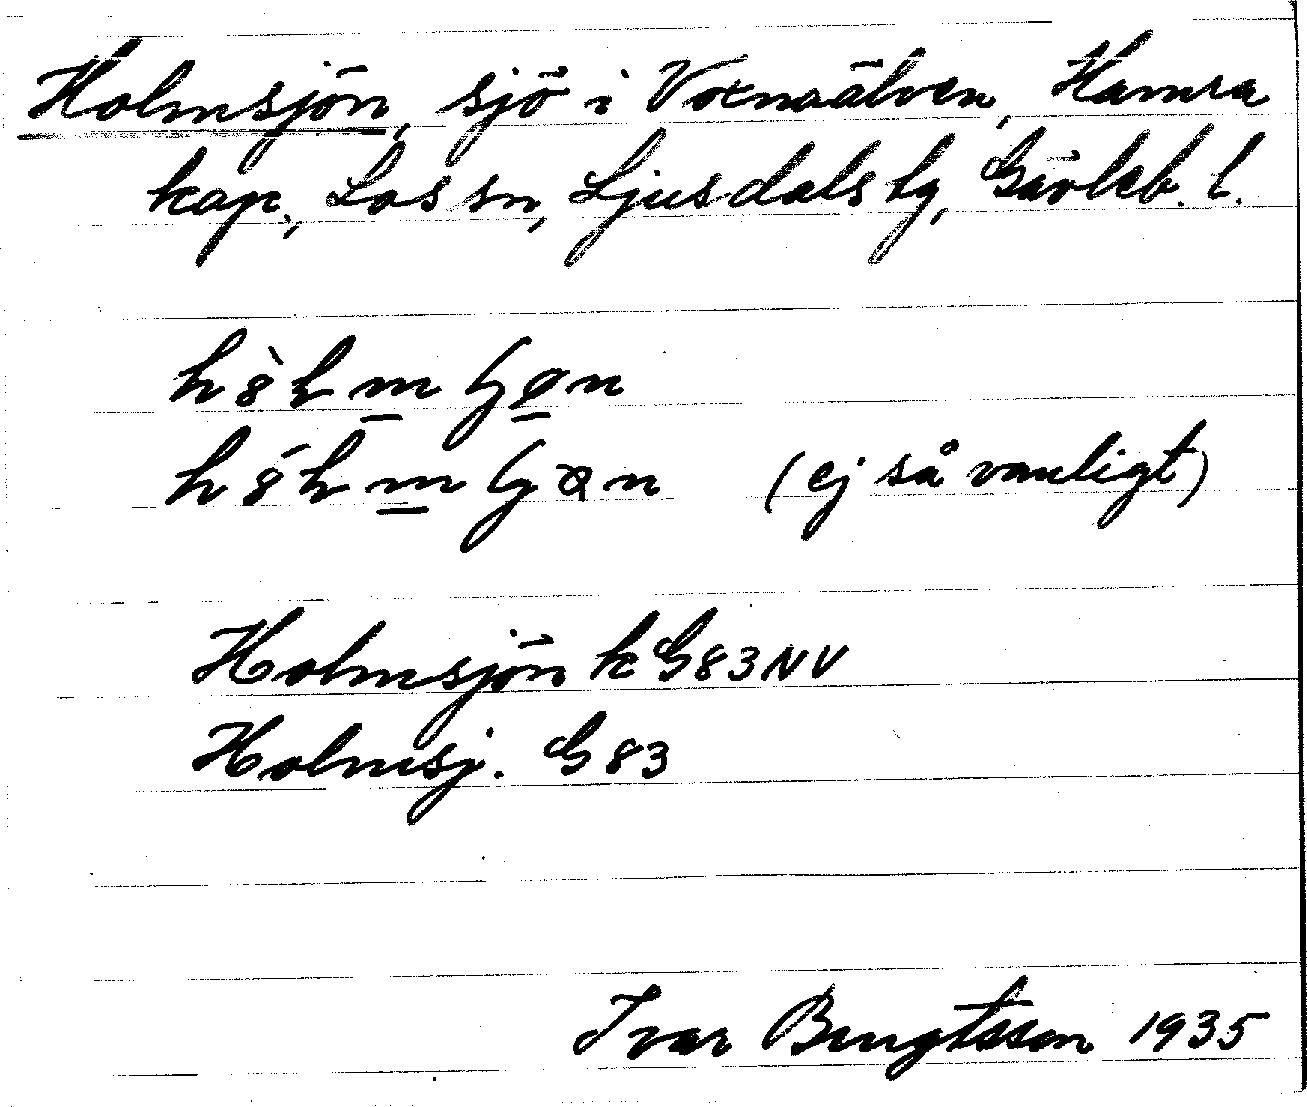 Holmsjön, sjö i Voxnaälven, Hamra
kap., Los sn, Ljusdals tg, Gävleb. l.
(ej så vanligt)
Holmsjön k G83NV
Holmsj. G 83
Ivar Bengtsson 1935